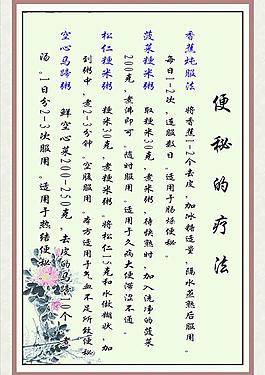 便秘的疗法
香蕉炖服法 将香蕉1-2个去皮，加冰糖适量，隔水蒸熟后服用。
每日1-2次，连服数日。适用于肠燥便秘。
菠菜粳米粥 取粳米30克，煮米粥，待快熟时，加入洗净的菠菜
200克，煮沸即可。随时服用。适用于久病大便滞涩不通。
松仁粳米粥 粳米30克，煮米粥。将松仁15克和水做糊状，加
到粥中，煮2-3分钟。空腹服用。本方适用于气血不足所致便秘
空心马蹄粥 鲜空心菜200-250克，去皮的马蹄10个，煮
汤。1日分2-3次服用。适用于热结便秘。